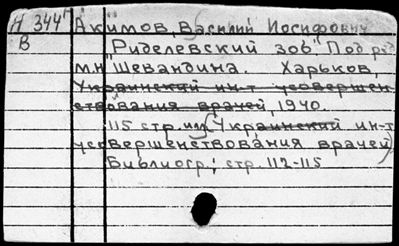 Н 3447 Акимов, Василий Иосифович
В "Риделевский зоб". Под ред.
М.Н. Шевандина. Харьков,
Украинский ин-т усовершен-
ствования врачей, 1940.
115 стр. илл. (Украинский ин-т
усовершенствования врачей)
Библиогр.: стр. 112-115